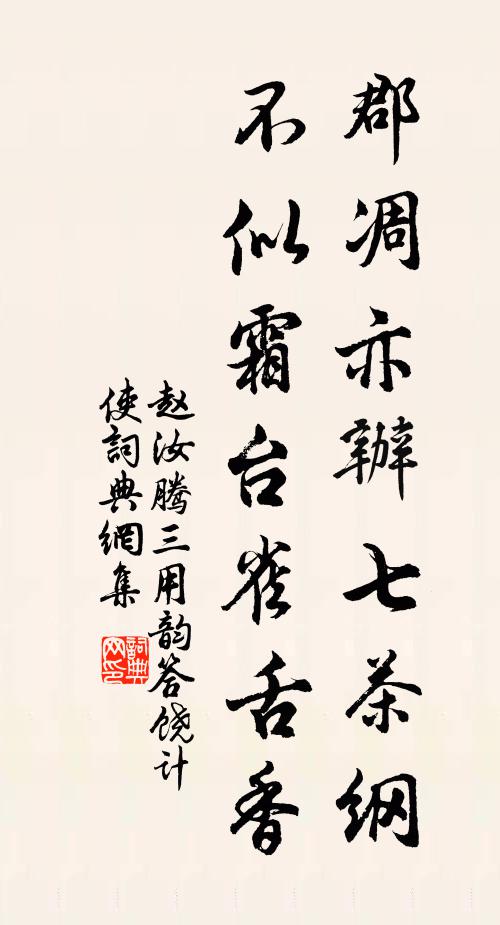 郡凋亦辦七茶纲
不似霜台雀舌香
赵汝腾三用韵答饶计
使詞典網集
詞典网印